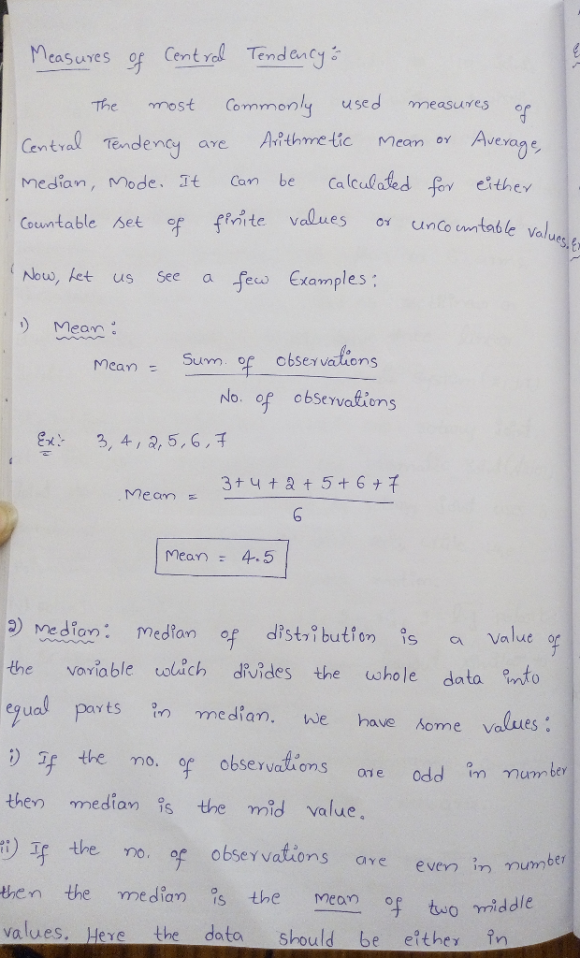 Measures of Central Tendency:
The most Commonly used measures of
Central Tendency are Arithmetic Mean or Average,
Median, Mode. It Can be Calculated for either
Countable set of finite values or uncountable values.
Now, Let us See a few Examples:
1) Mean:
Mean = Sum. of observations
No. of observations
Ex:- 3, 4, 2, 5, 6, 7
Mean = 3+4+2+5+6+7
6
Mean = 4.5
2) Median: Median of distribution is a value of
the variable which divides the whole data into
equal parts in median. We have some values:
i) If the no. of observations are odd in number
then median is the mid value.
ii) If the no. of observations are even in number
then the median is the mean of two middle
values. Here the data should be either in